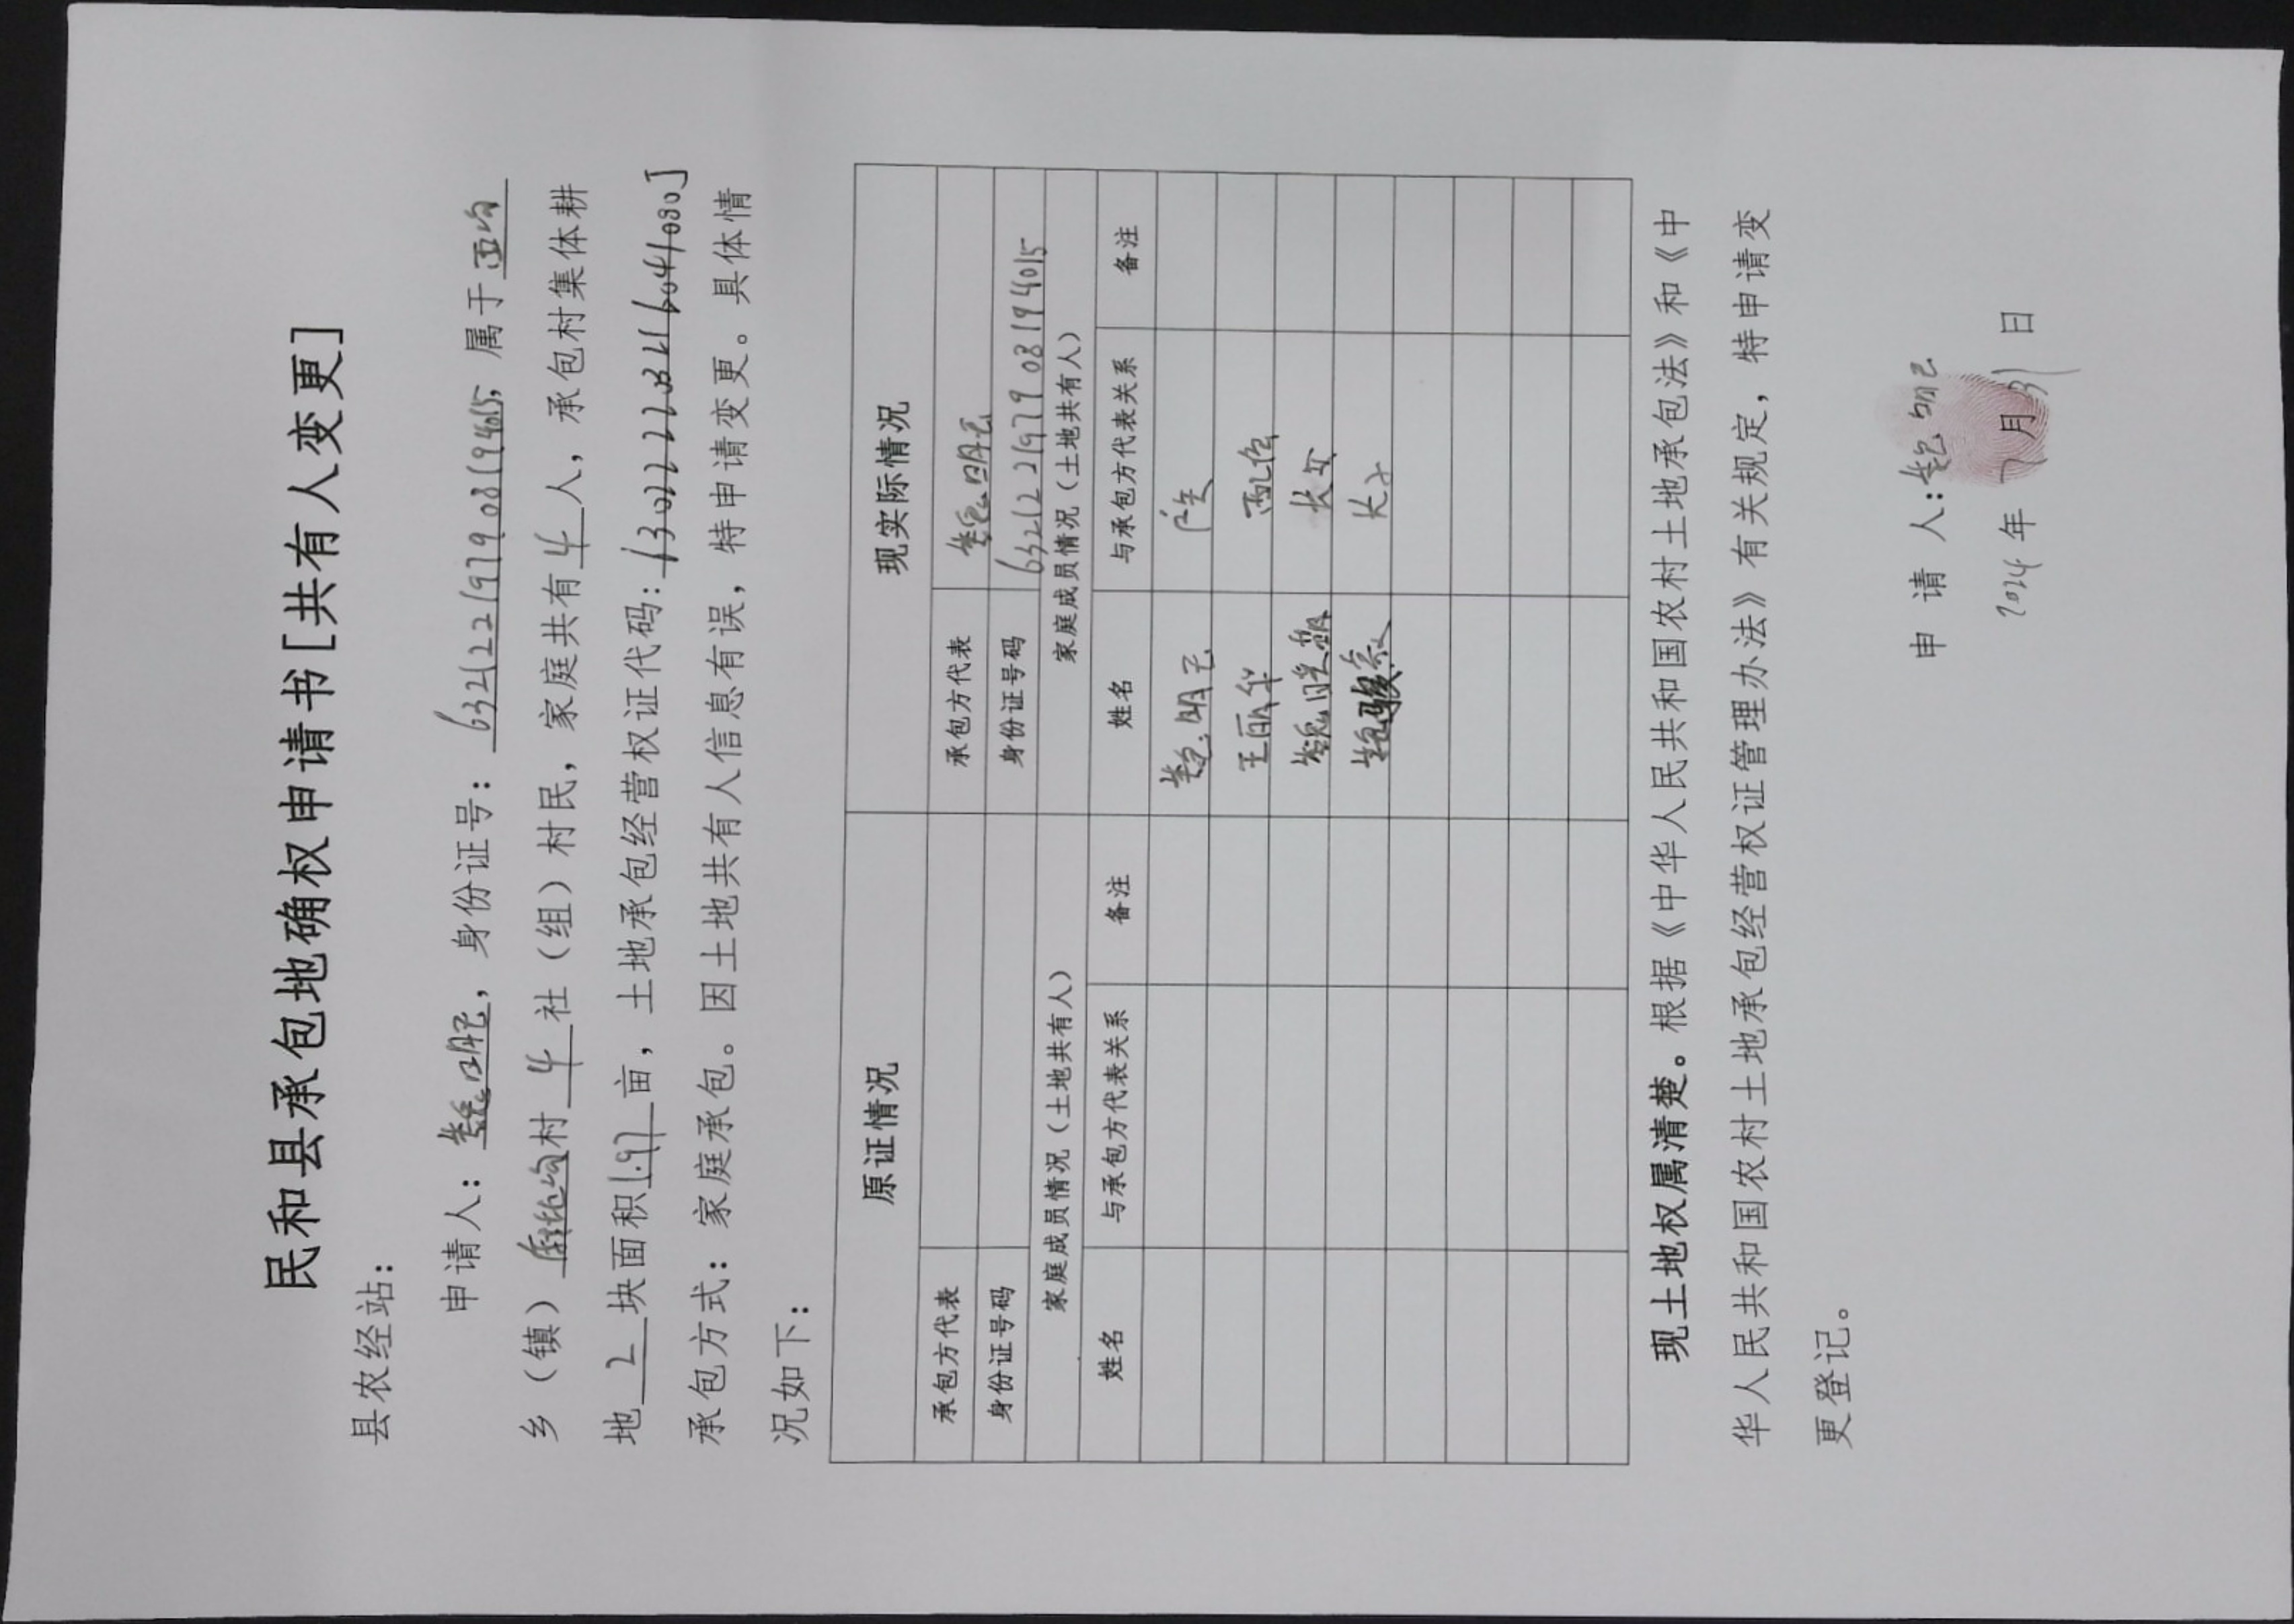 民和县承包地确权申请书[共有人变更]
县农经站：
申请人：魏明云，身份证号：632122197908194015，属于西沟
乡（镇）村 4 社（组）村民，家庭共有 4 人，承包村集体耕
地 2 块面积 1.97 亩，土地承包经营权证代码：
承包方式：家庭承包。因土地共有人信息有误，特申请变更。具体情
况如下：
原证情况 现实际情况
承包方代表 承包方代表 魏明云
身份证号码 身份证号码 632122197908194015
家庭成员情况（土地共有人） 家庭成员情况（土地共有人）
姓名 与承包方代表关系 备注 姓名 与承包方代表关系 备注
魏明云 户主
王丽华 配偶
魏晓萌 长女
魏骏 长子
现土地权属清楚。根据《中华人民共和国农村土地承包法》和《中
华人民共和国农村土地承包经营权证管理办法》有关规定，特申请变
更登记。
申请人：魏明云
2024 年 7 月 31 日